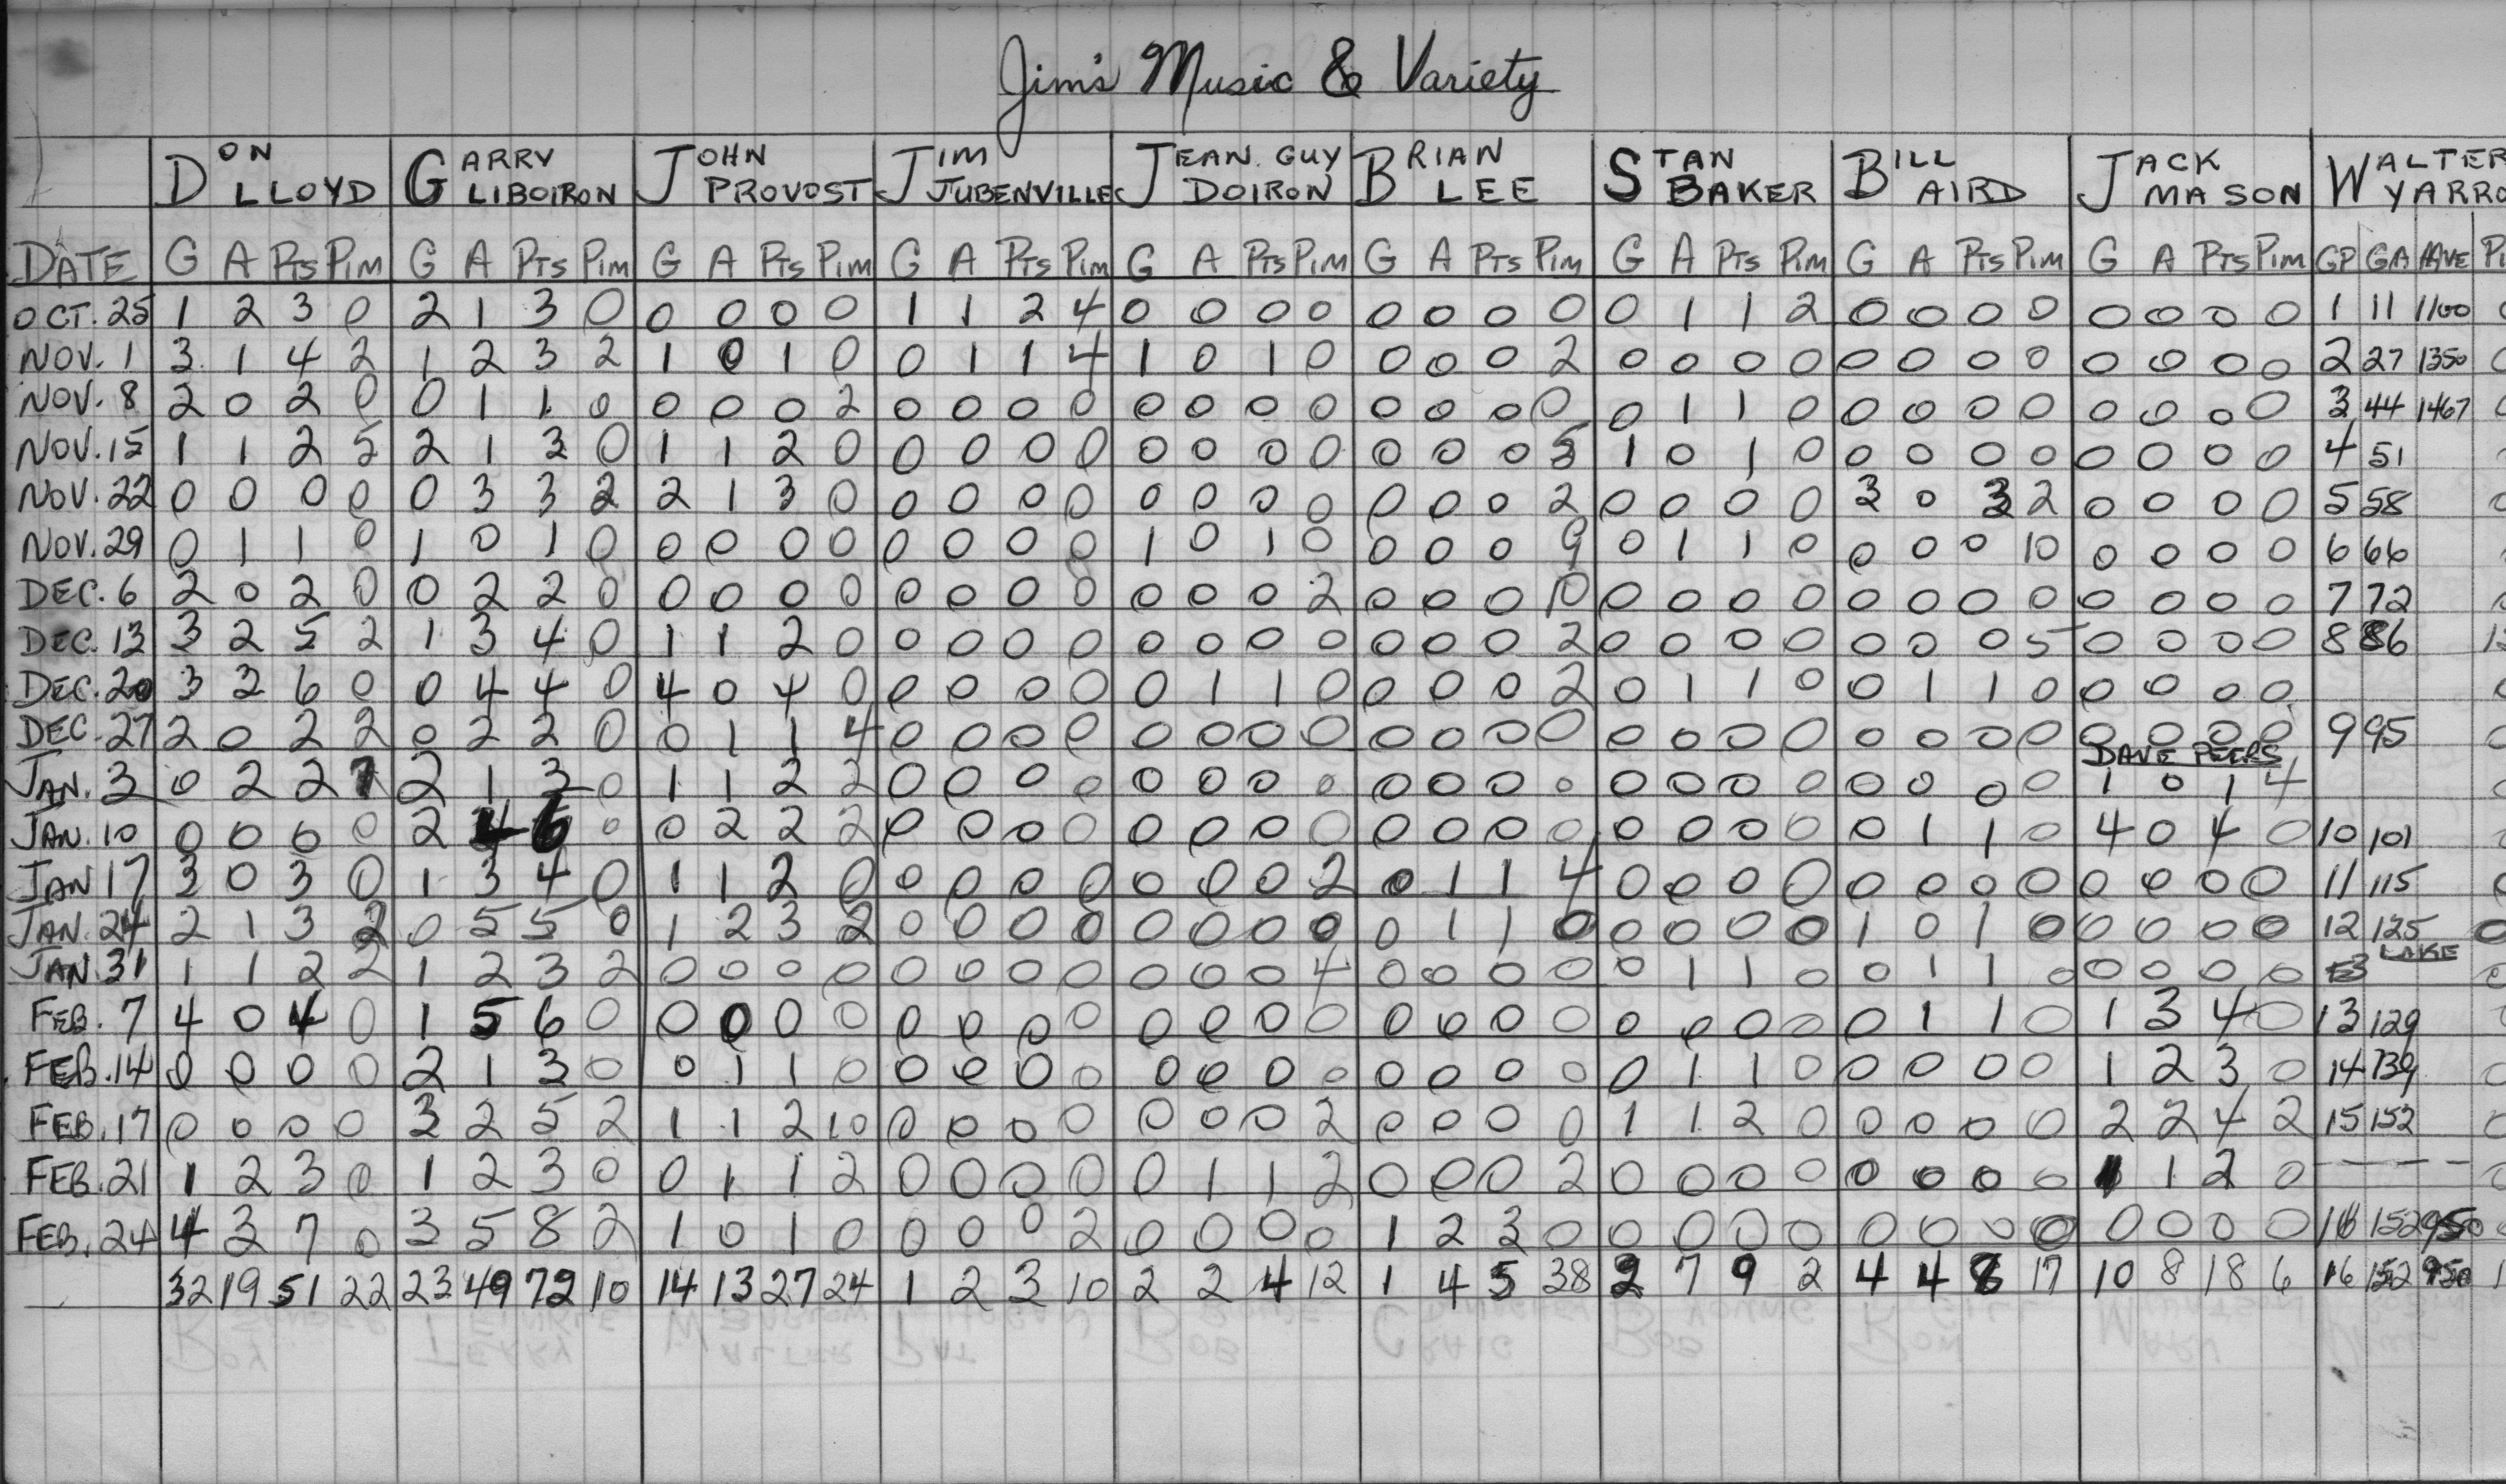 Jim's Music & Variety
DON LLOYD GARRY LIBOIRON JOHN PROVOST JIM JUBENVILLE JEAN. GUY DOIRON BRIAN LEE STAN BAKER BILL AIRD JACK MASON WALTER YARRO
DATE G A PTS PIM G A PTS PIM G A PTS PIM G A PTS PIM G A PTS PIM G A PTS PIM G A PTS PIM G A PTS PIM G A PTS PIM GP GA AVE PI
OCT. 25 1 2 3 0 2 1 3 0 0 0 0 0 1 1 2 4 0 0 0 0 0 0 0 0 0 1 1 2 0 0 0 0 0 0 0 0 1 11 1100
NOV. 1 3 1 4 2 1 2 3 2 1 0 1 0 0 1 1 4 1 0 1 0 0 0 0 2 0 0 0 0 0 0 0 0 0 0 0 0 2 27 1350
NOV. 8 2 0 2 0 0 1 1 0 0 0 0 2 0 0 0 0 0 0 0 0 0 0 0 0 0 1 1 0 0 0 0 0 0 0 0 0 3 44 1467
NOV. 15 1 1 2 5 2 1 3 0 1 1 2 0 0 0 0 0 0 0 0 0 0 0 0 5 1 0 1 0 0 0 0 0 0 0 0 0 4 51
NOV. 22 0 0 0 0 0 3 3 2 2 1 3 0 0 0 0 0 0 0 0 0 0 0 0 2 0 0 0 0 3 0 3 2 0 0 0 0 5 58
NOV. 29 0 1 1 0 1 0 1 0 0 0 0 0 0 0 0 0 1 0 1 0 0 0 0 9 0 1 1 0 0 0 0 10 0 0 0 0 6 66
DEC. 6 2 0 2 0 0 2 2 0 0 0 0 0 0 0 0 0 0 0 0 2 0 0 0 10 0 0 0 0 0 0 0 0 0 0 0 0 7 72
DEC. 13 3 2 5 2 1 3 4 0 1 1 2 0 0 0 0 0 0 0 0 0 0 0 0 2 0 0 0 0 0 0 0 5 0 0 0 0 8 86
DEC. 20 3 3 6 0 0 4 4 0 4 0 4 0 0 0 0 0 0 1 1 0 0 0 0 2 0 1 1 0 0 1 1 0 0 0 0 0
DEC. 27 2 0 2 2 0 2 2 0 0 1 1 4 0 0 0 0 0 0 0 0 0 0 0 0 0 0 0 0 0 0 0 0 0 0 0 0 9 95
DAVE PEERS
JAN. 3 0 2 2 7 2 1 3 0 1 1 2 2 0 0 0 0 0 0 0 0 0 0 0 0 0 0 0 0 0 0 0 0 1 0 1 4
JAN. 10 0 0 0 0 2 4 6 0 0 2 2 2 0 0 0 0 0 0 0 0 0 0 0 0 0 0 0 0 0 1 1 0 4 0 4 0 10 101
JAN 17 3 0 3 0 1 3 4 0 1 1 2 0 0 0 0 0 0 0 0 2 0 1 1 4 0 0 0 0 0 0 0 0 0 0 0 0 11 115
JAN. 24 2 1 3 2 0 5 5 0 1 2 3 2 0 0 0 0 0 0 0 0 0 1 1 0 0 0 0 0 1 0 1 0 0 0 0 0 12 125 0
JAN. 31 1 1 2 2 1 2 3 2 0 0 0 0 0 0 0 0 0 0 0 4 0 0 0 0 0 1 1 0 0 1 1 0 0 0 0 0 LAKE
FEB. 7 4 0 4 0 1 5 6 0 0 0 0 0 0 0 0 0 0 0 0 0 0 0 0 0 0 0 0 0 0 1 1 0 1 3 4 0 13 129
FEB. 14 0 0 0 0 2 1 3 0 0 1 1 0 0 0 0 0 0 0 0 0 0 0 0 0 0 1 1 0 0 0 0 0 1 2 3 0 14 139
FEB. 17 0 0 0 0 3 2 5 2 1 1 2 10 0 0 0 0 0 0 0 2 0 0 0 0 1 1 2 0 0 0 0 0 2 2 4 2 15 152
FEB. 21 1 2 3 0 1 2 3 0 0 1 1 2 0 0 0 0 0 1 1 2 0 0 0 2 0 0 0 0 0 0 0 0 1 1 2 0 - - - -
FEB. 24 4 3 7 0 3 5 8 2 1 0 1 0 0 0 0 2 0 0 0 0 1 2 3 0 0 0 0 0 0 0 0 0 0 0 0 0 16 152 950
32 19 51 22 23 49 72 10 14 13 27 24 1 2 3 10 2 2 4 12 1 4 5 38 2 7 9 2 4 4 8 17 10 8 18 6 16 152 950 1